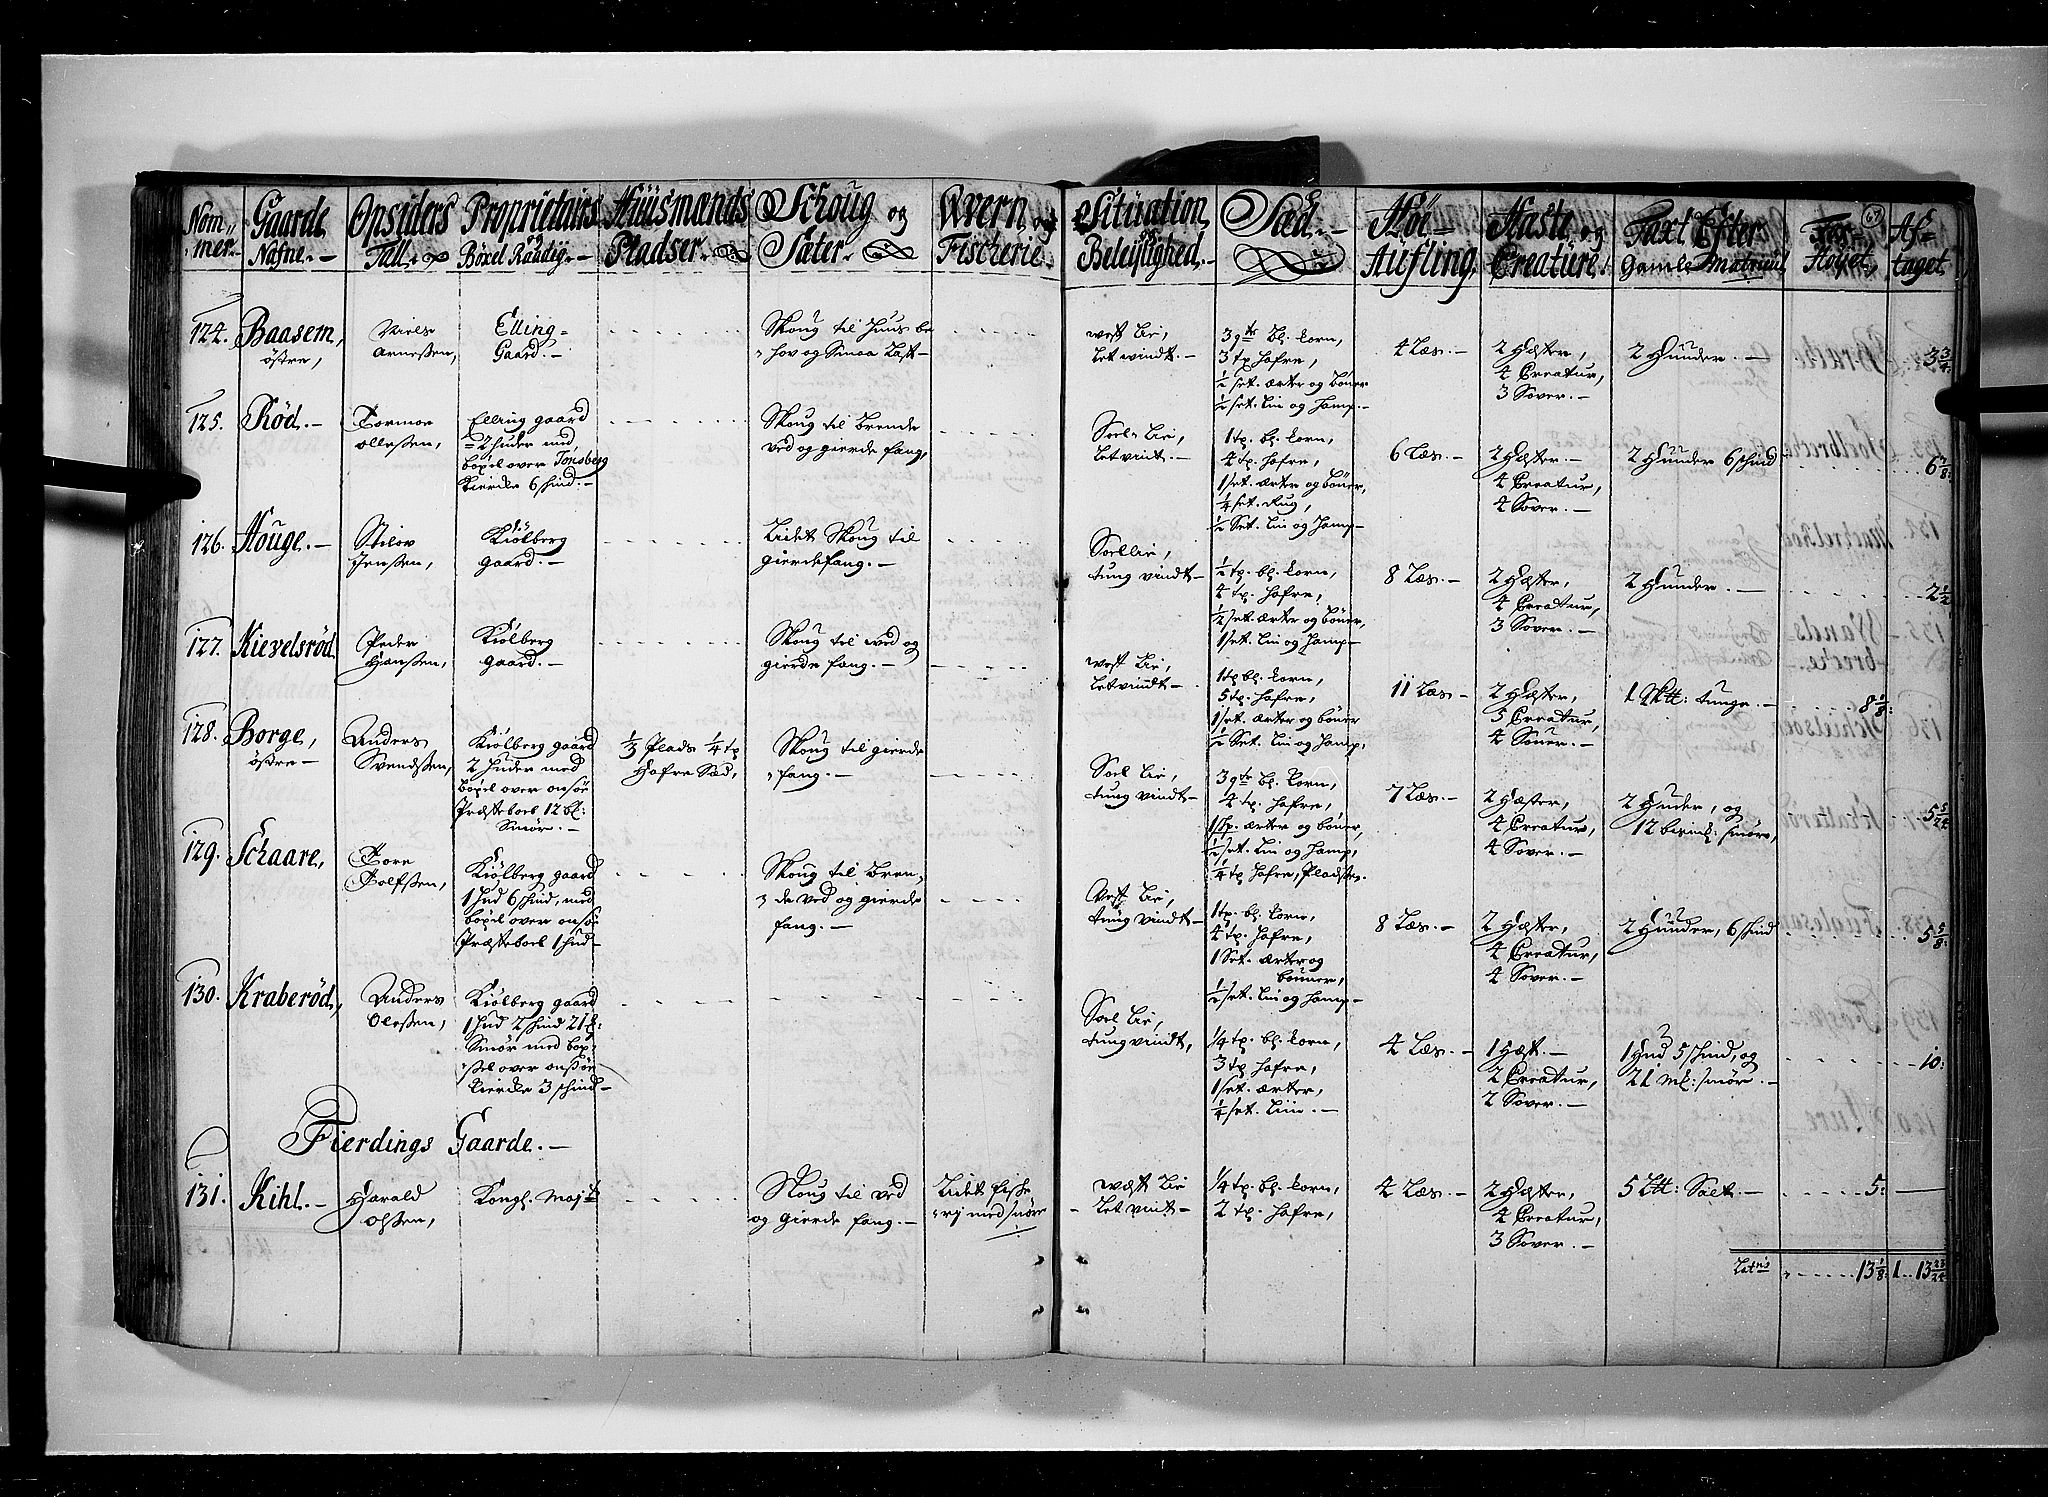 Nom¬mer.
Gaarde Nafne.
Opsiders Tall.
Proprietairs Böxel Raadig.
Huusmands Pladser.
Schoug og Sæter.
Qvern og Fischerie.
Situation og Beleiflighed.
Sæd.
Höe Aufling.
Hæste og Creature.
Taxt Efter Gamle Matricul
For-Höyet
Af-taget.
67
124. Baasem, östre,
Niels Arneßen,
Elling-Gaard.
Skoug til Huus be
hov og Smaa Last
vest Lie,
Let vindt.
3 qrte bl. korn,
3 tp hafre,
1/2 set. ærter og böner
1/2 set. Lin og hamp.
4 Læs.
2 Hæster,
4 Creatur,
3 Sover.
2 Huuder.
3 3/4
125. Röd.
Tormoe Olleßen,
Elling gaard
2 huder med
böxel over Tonsberg
kierke 6 skind.
Skoug til brende
ved og gierde fang,
Soel Lie,
Letvint.
1 tp. bl. korn,
4 tp. hafre,
1 set. ærter og böner,
1/4 set. Rug,
1/2 Set. Lin og hamp
6 Læs.
2 Hæster.
4 Creatur,
4 Sover.
2 Huuder 6 skind
6 7/8
126. Houge.
Jenßen,
Kiölberg gaard.
Lidet Skoug til
gierdefang.
Soel Lie,
tung vindt
1/2 tp. bl. korn,
4 tp. hafre,
1/2 set. ærter og böner,
1 set. Lin og hamp
8 Læs.
2 Hæster,
4 Creatur,
3 Sover.
2 Huuder.
2 1/2
127. Kievelsröd
Peder Hanßen,
Kiölberg gaard.
Skoug til ved og
gierde fang.
vest Lie,
Letvindt
1 tp bl. korn,
5 tp. hafre,
1 set. ærter og böner
1/2 Set. Lin og hamp,
11 Læs
2 Hæster,
5 Creatur,
4 Souer.
1 Skt: tunge.
8 1/8
128. Borge, östre
Anders Svendßen,
Kiölberg gaard
2 huder med
böxel over onsöe
Præsteboel 12 bl:
Smör.
1/3 Plads 1/4 tp
Hafre Sæd,
Skoug til gierde
fang.
Soel Lie,
tung vindt
3 qrte bl. korn,
4 tp. hafre,
1 Set. ærter og böner,
1/2 set. Lin og hamp,
1/4 tp hafre, Pladsen.
7 Læs.
2 Hæster,
4 Creatur,
4 Sover.
2 Huder, og
12 smörs,
5 5/24
129. Schaare,
Tore Tolfßen,
Kiölberg gaard
1 hud 6 skind, med
böxel over onsöe
Præsteboel 1 hud
Skoug til bren
de ved og gierde
fang.
Vest Lie,
tung vindt
1 tp. bl. korn,
4 tp. hafre,
1 Set. ærter og
böuner,
1/2 set. Lin og hamp
8 Læs.
2 Hæster,
4 Creatur,
4 Sover.
2 Huuder, 6 skind
5 5/8
130. Kraberöd,
Anders Oleßen,
Kiölberg gaard
1 hud 2 skind
Smör med böx
sel over onsöe
kierke 3 skind
Soel Lie,
tung vindt,
1/4 tp. bl. korn,
3 tp hafre,
1 set. ærter,
1/4 set. Liin.
4 Læs.
1 Hæst.
2 Creatur,
2 Sover.
1 Hud 5 skind, og
21 mk: smör.
10:
Fierdings Gaarde.
131. Kihl.
Harald Olßen,
Kongl. Maj.
Skoug til ved
og gierde fang.
Lidet fiske
rj med snöre
væst Lie
Let vint
1/4 tp. bl. korn,
2 tp. hafre,
4 Læs.
2 Hæster,
4 Creatur,
3 Sover.
5 Lt: Salt.
5:
13 1/8: 1.. 13 23/24